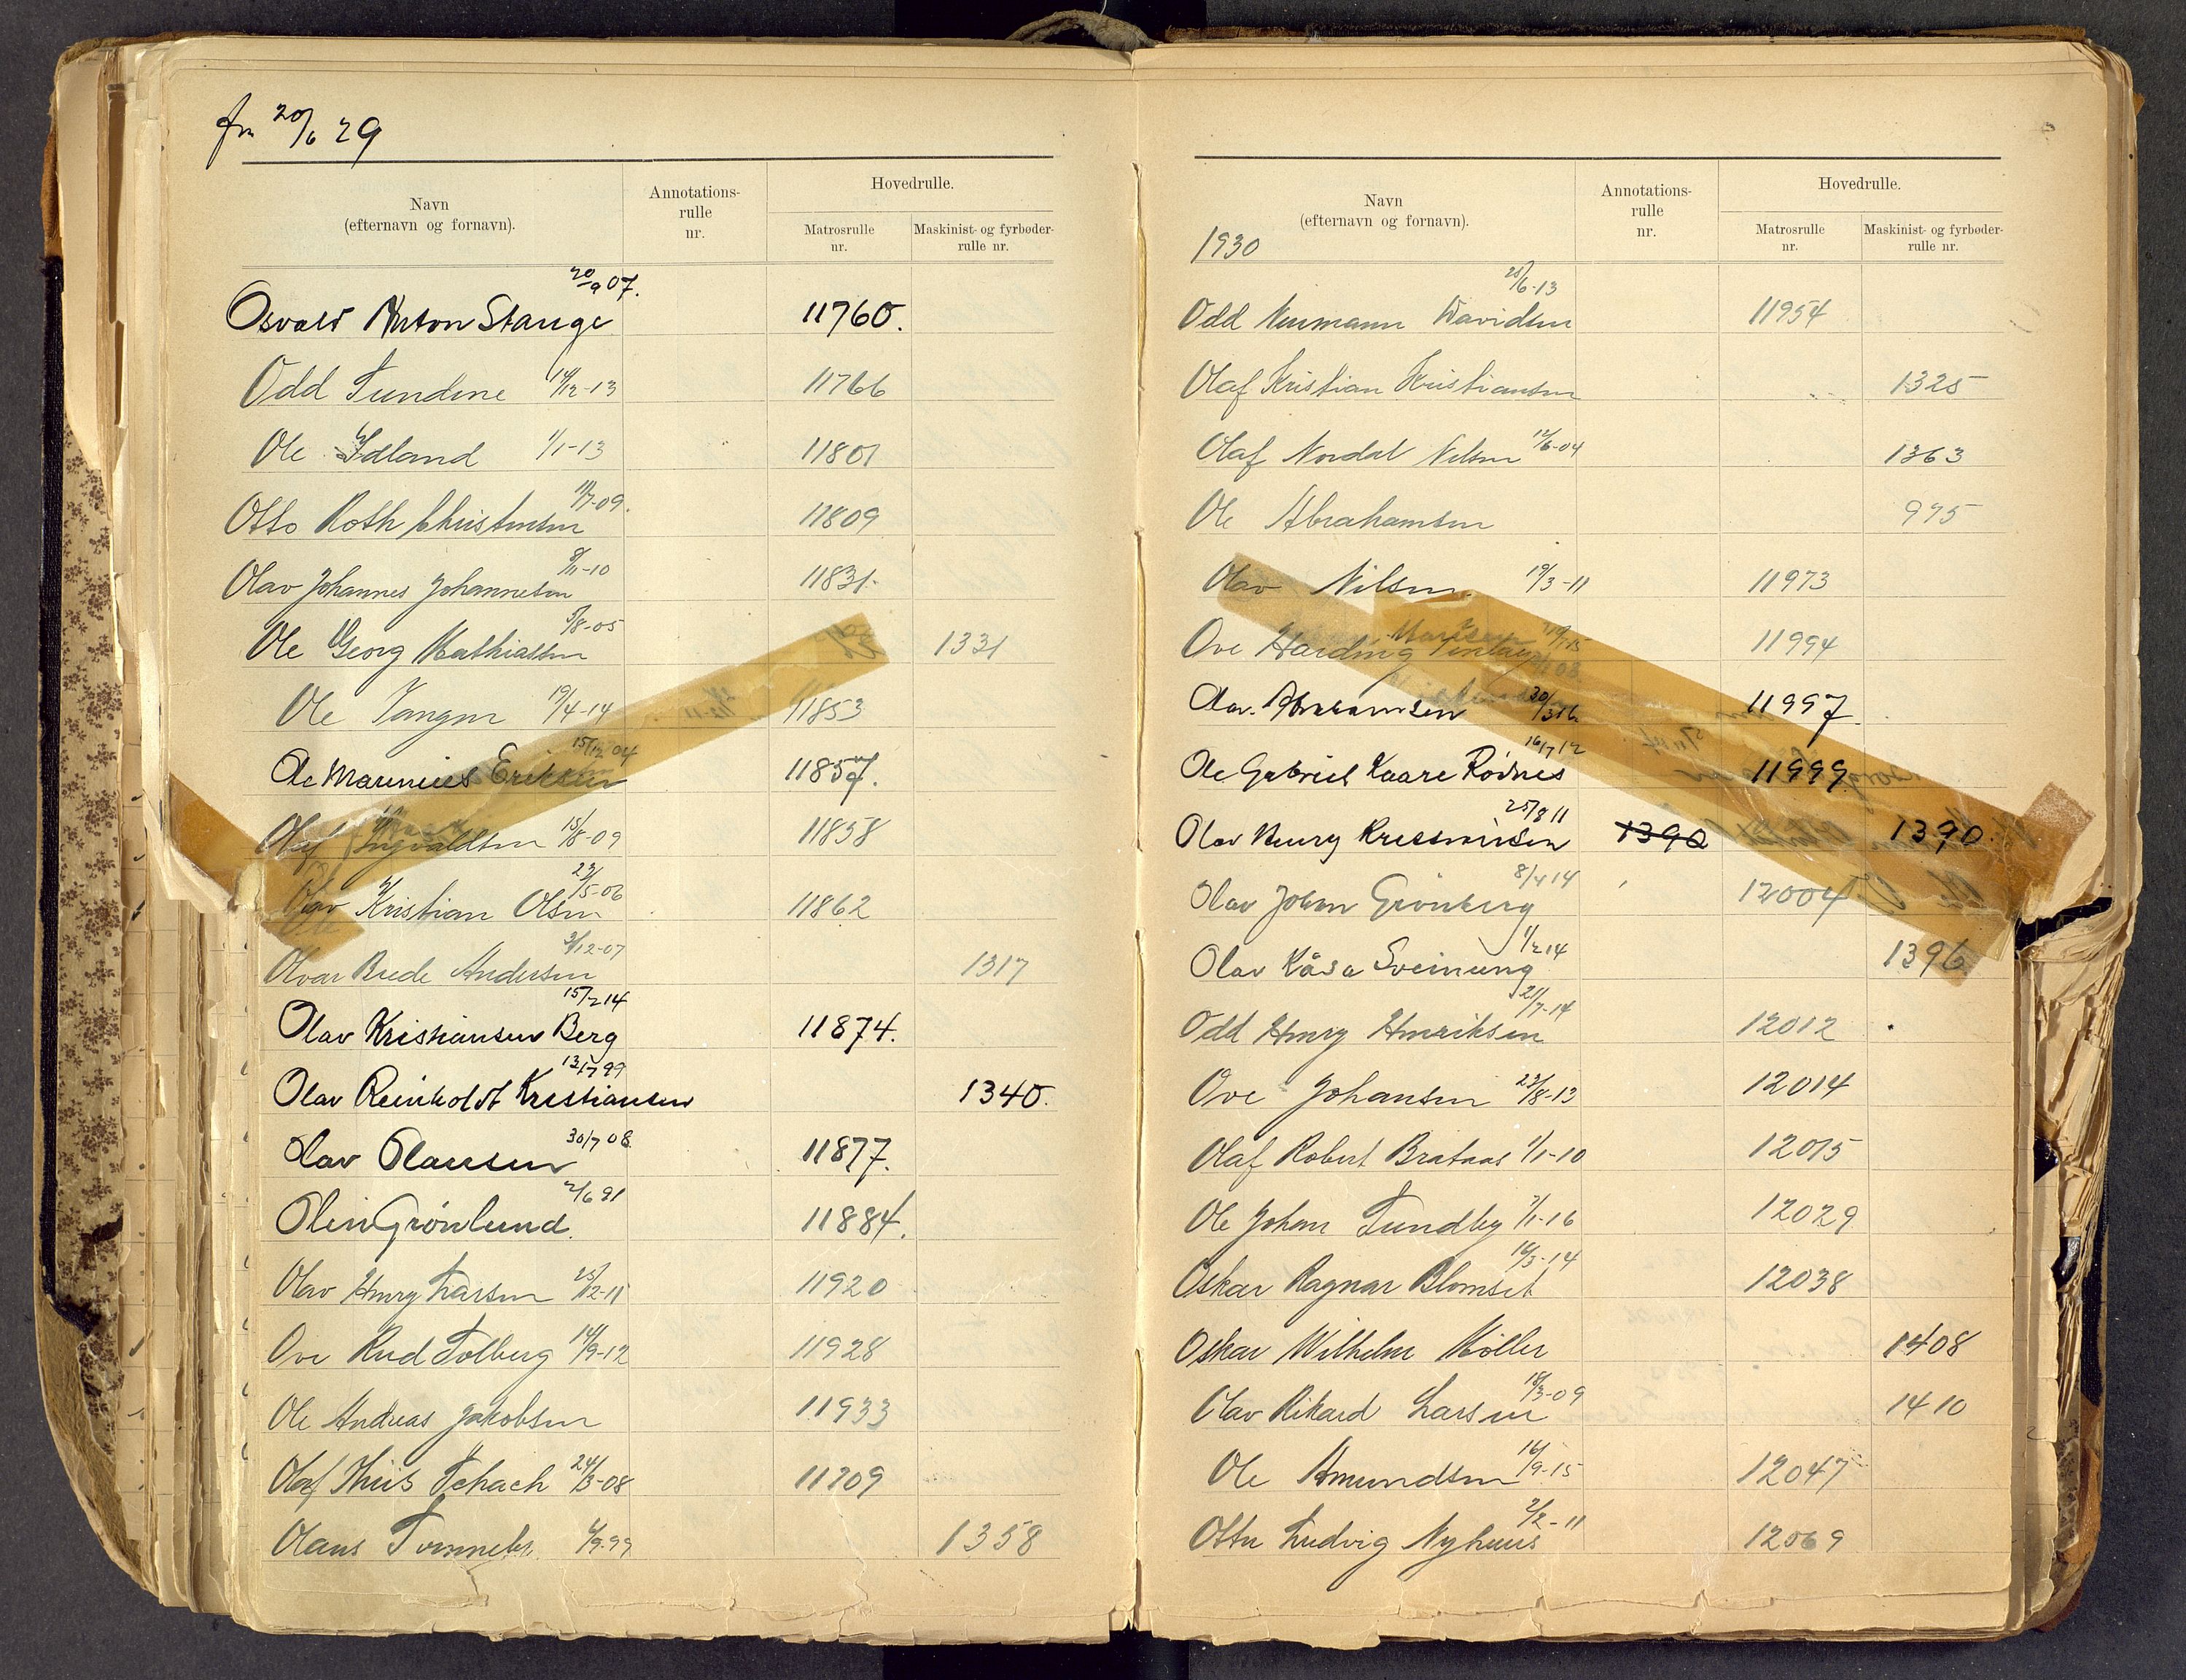 fra 20/6 29
Navn
(efternavn og fornavn).
Annotations-
rulle
nr.
Hovedrulle.
Matrosrulle
nr.
Maskinist- og fyrbøder-
rulle nr.
Osvald Anton Stange 20/9 07. 11760.
Odd Tundene 14/12-13 11766
Ole Ydland 1/1-13 11801
Otto Roth Christensen 11/7-09. 11809
Olav Johannes Johannesen 8/11-10 11831.
Ole Georg Mathiassen 5/8-05 1331
Ole Tangen 19/4-14 11853
Ole Marinius Eriksen 15/12 04 11857.
Olaf Ingvaldsen 15/8-09 11858
Olav Kristian Olsen 23/5-06 11862
Olvar Brede Andersen 3/12-07 1317
Olav Kristiansen Berg 15/2 14 11874.
Olav Reinholdt Kristiansen 13/7 99 1340.
Olav Olausen 30/7 08 11877.
Olein Grønlund 2/6 91 11884.
Olav Henry Larsen 25/2-11 11920
Ove Rud Solberg 14/9-12 11928
Ole Andreas Jakobsen 11933
Olaf Schach 24/3-08 11209
Olaus 4/9-99 1358
1930
Navn
(efternavn og fornavn).
Annotations-
rulle
nr.
Hovedrulle.
Matrosrulle
nr.
Maskinist- og fyrbøder-
rulle nr.
Odd Neumann Davidsen 25/6-13 11954
Olaf Kristian Kristiansen 1325
Olaf Nordal Nilsen 12/6-04 1363
Ole Abrahamsen 975
Olav Nilsen 19/3-11 11973
Ove Harding 11994
Olav Abrahamsen 30/3 16 11997.
Ole Gabriel Kaare Rødnes 16/7 12 11999.
Olav Henry Rasmussen 25/8 11 1390 1390.
Olav Johan Grönberg 8/4 14 12004
Olav Kåsa Sveinung 1/2 14 1396
Odd Henry Henriksen 21/7-14 12012
Ove Johansen 23/8-13 12014
Olaf Robert Brataas 1/1-10 12015
Ole Johan Sundby 7/1-16 12029
Oskar Ragnar Blomset 16/3-14 12038
Oskar Wilhelm Möller 1408
Olav Rikard Larsen 18/3-09 1410
Ole Amundsen 16/9-15 12047
Otto Ludvig Nyhuus 2/2-11 12069